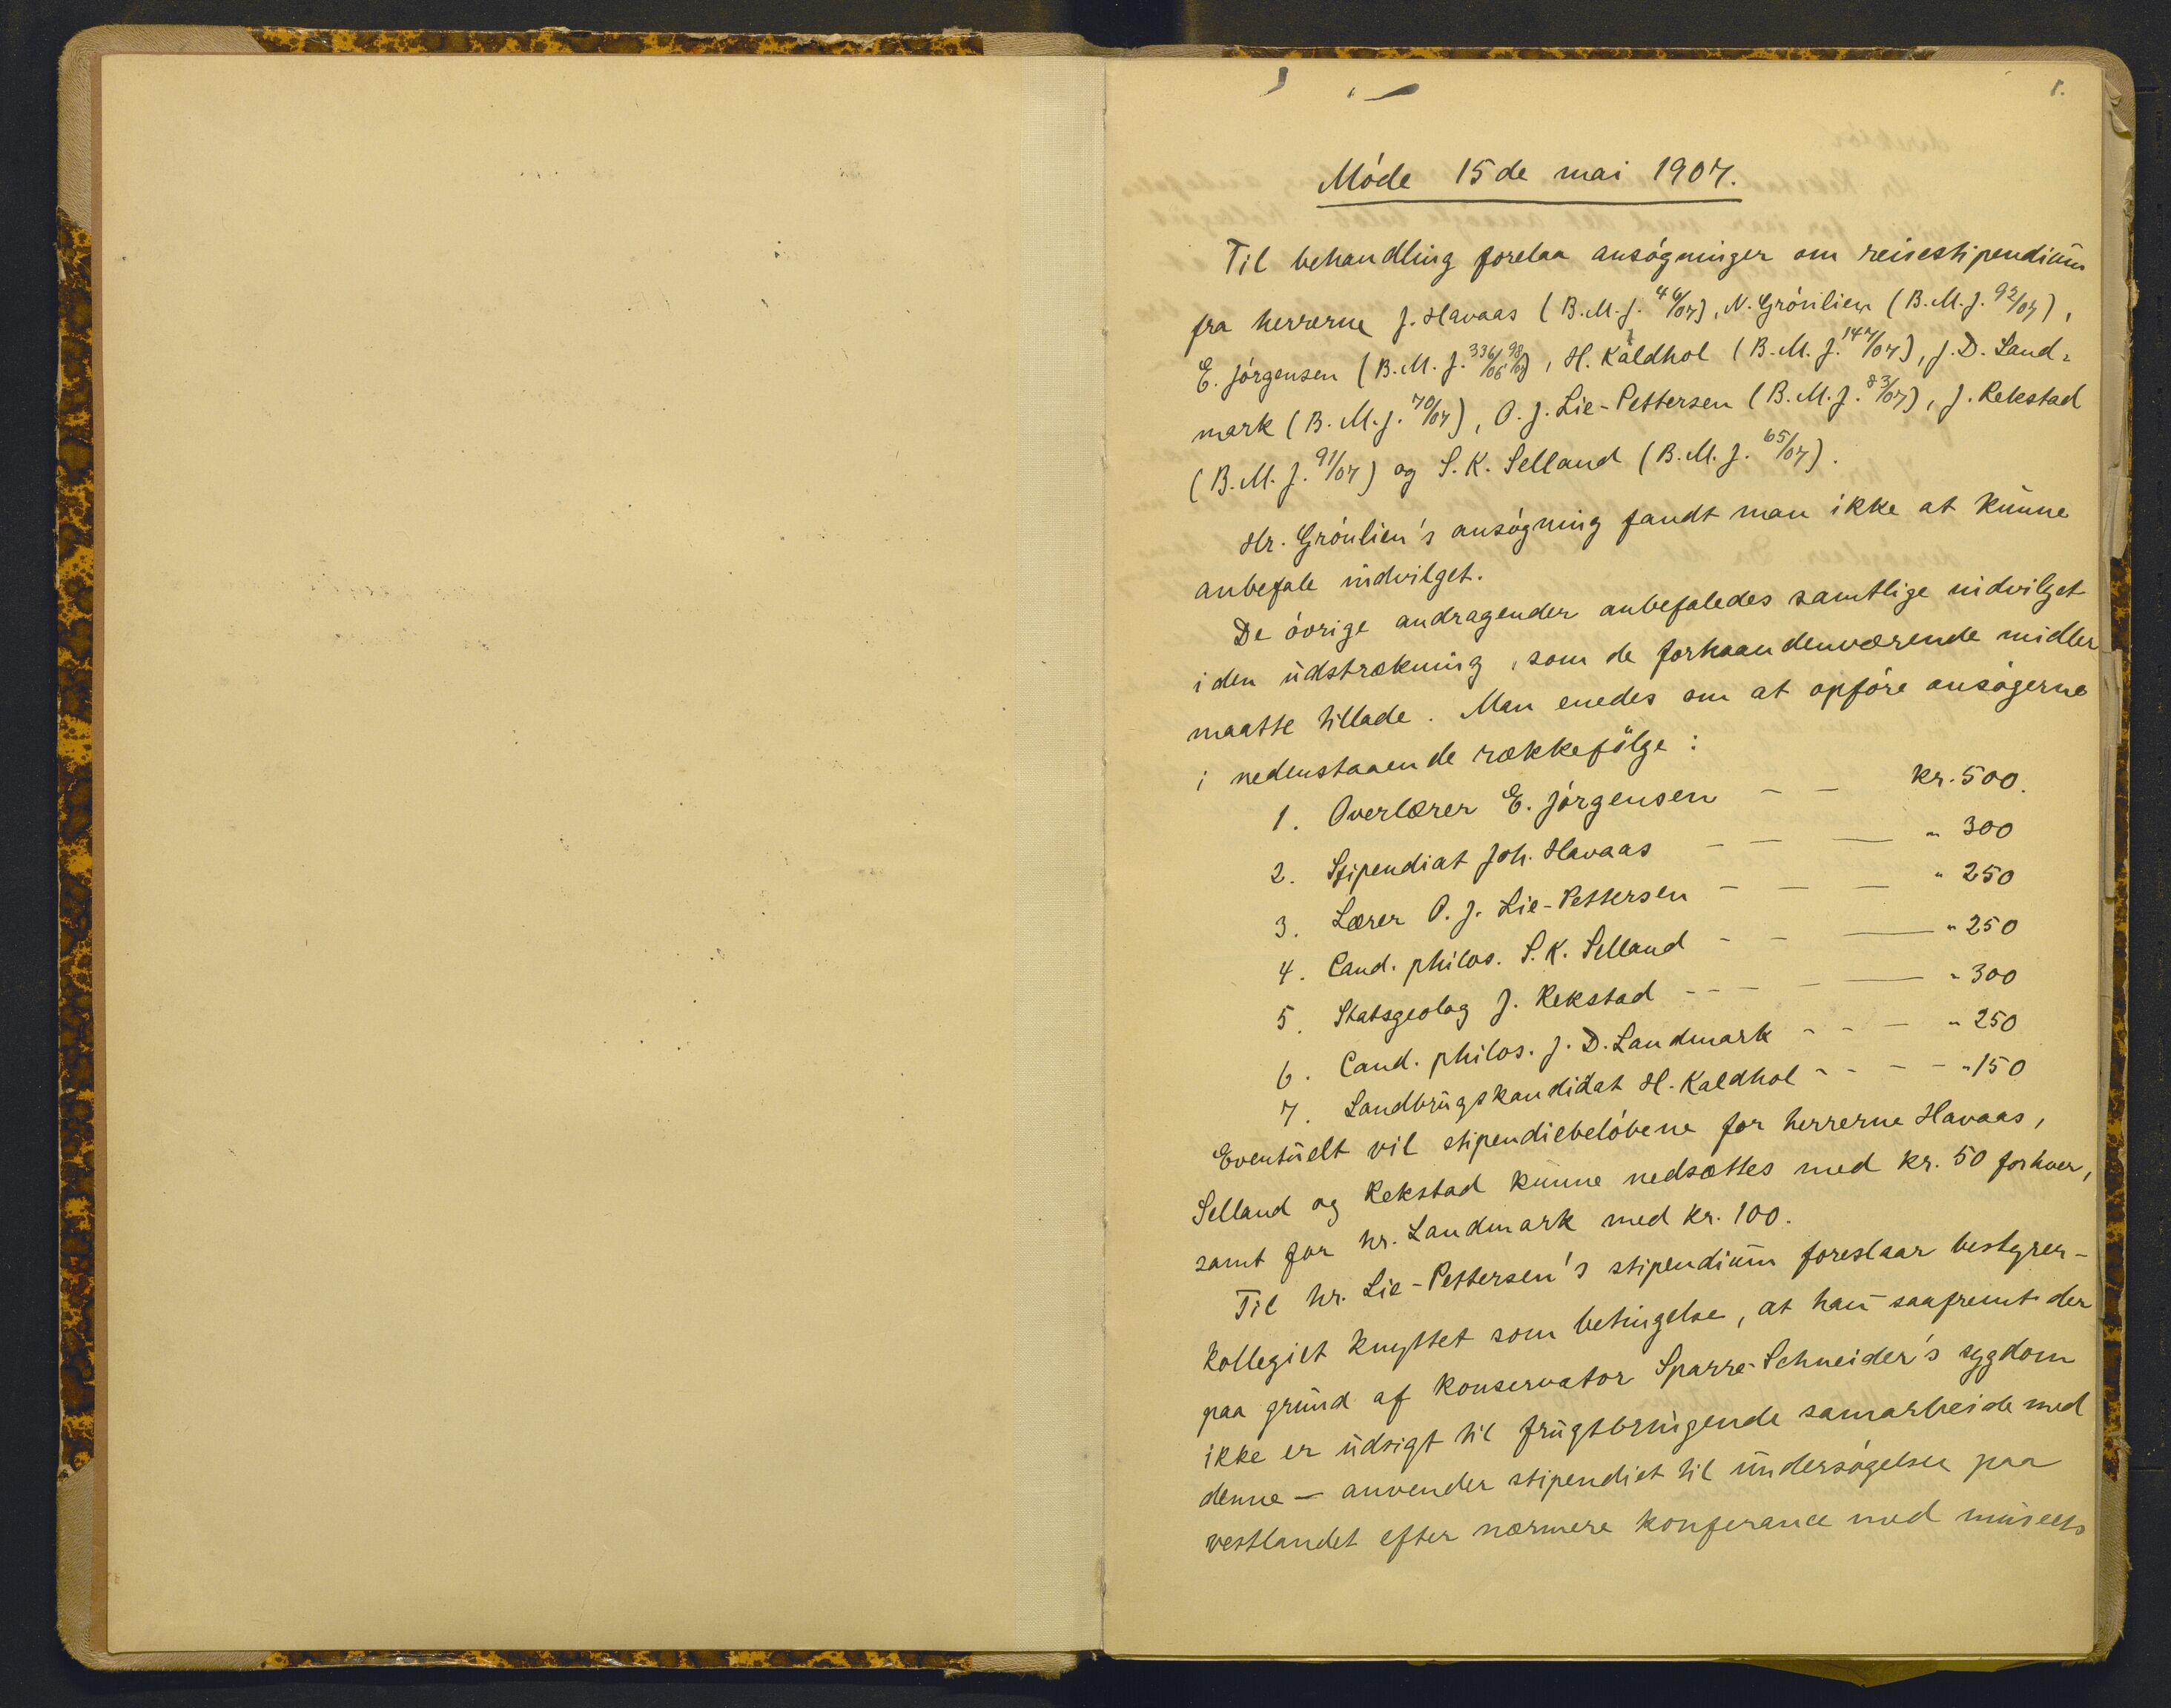 1.
Móde 15de mai 1907.
Til behandling forelaa ansógninger om reisestipendium
fra herrerne J. Havaas (B.M.J. 46/07), N. Grónlien (B.M.J. 92/07),
E. Jórgensen (B.M.J. 336/06 98/07), H. Kaldhol (B.M.J. 147/07), J.D. Land-
mark (B.M.J. 70/07), O.J. Lie-Pettersen (B.M.J. 83/07), J. Rekstad
(B.M.J. 91/07) og S.K. Selland (B.M.J. 65/07).
Hr. Grónlien's ansógning fandt man ikke at kunne
anbefale indvilget.
De óvrige andragender anbefaledes samtlige indvilget
i den udstrækning, som de forhaandenværende midler
maatte tillade. Man enedes om at opfóre ansógerne
i nedenstaaende rækkefólge:
1. Overlærer E. Jórgensen – – kr. 500.
2. Stipendiat Joh. Havaas – – — " 300
3. Lærer O.J. Lie-Pettersen – – — " 250
4. Cand. philos. S.K. Selland – – — " 250
5. Statsgeolog J. Rekstad – – – – — " 300
6. Cand. philos. J.D. Landmark – – – " 250
7. Landbrugskandidat H. Kaldhol – – – – " 150
Eventuelt vil stipendiebelóbene for herrerne Havaas,
Selland og Rekstad kunne nedsættes med kr. 50 for hver,
samt for hr. Landmark med kr. 100.
Til hr. Lie-Pettersen's stipendium foreslaar bestyrer-
kollegiet knyttet som betingelse, at han – saafremt der
paa grund af konservator Sparre-Schneider's sygdom
ikke er udsigt til frugtbringende samarbeide med
denne – anvender stipendiet til undersógelser paa
vestlandet efter nærmere konferance med museets